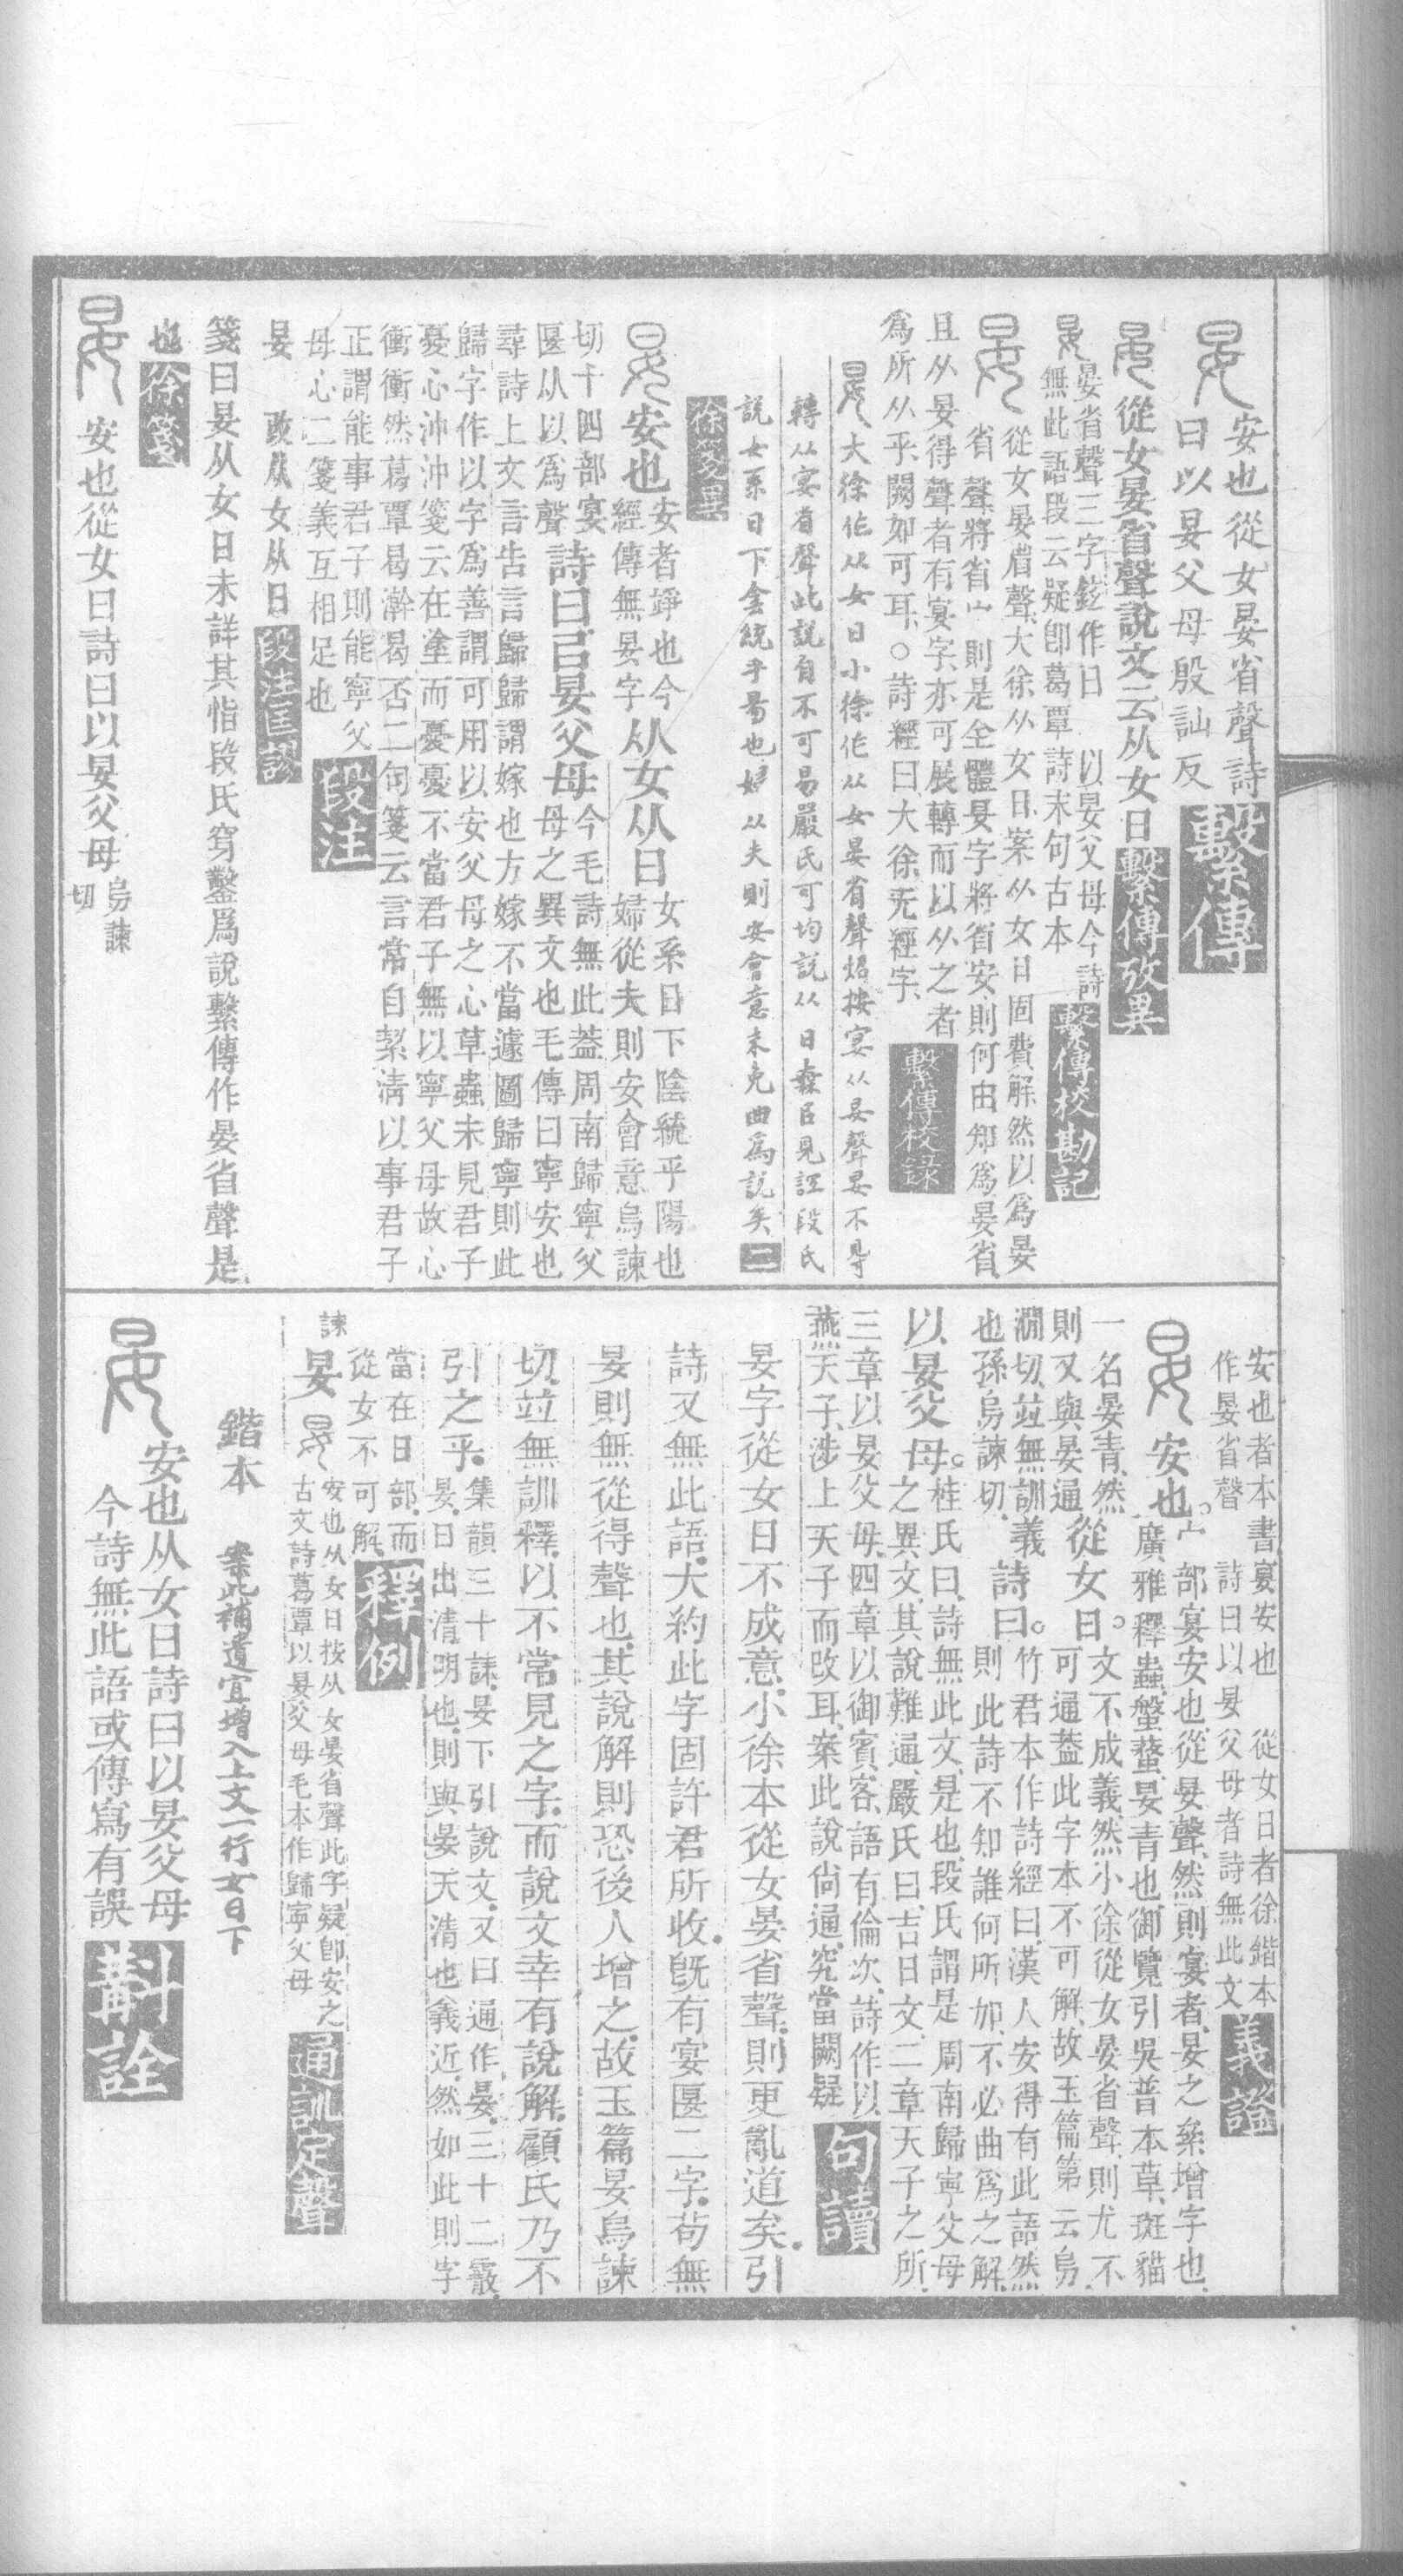 安也從女晏省聲詩
曰以晏父母殷訕反
繫傳
從女晏省聲說文云从女日
繫傳攷異
晏省聲三字鉉作日 以晏父母今詩
無此語段云疑卽葛覃詩末句古本
繫傳校勘記
從女晏省聲大徐从女日案从女日固費解然以爲晏
省聲將省宀則是全體妟字將省安則何由知爲晏省
且从妟得聲者有宴字亦可展轉而以从之者
爲所从乎闕如可耳○詩經曰大徐无經字
繫傳校録
大徐作从女日小徐作从女晏省聲
轉从宴省聲此說自不可易嚴氏可均說从日
說女系日下侌統乎昜也婦从夫則安會意未免曲爲說矣
徐箋異
二
安也
安者竫也今
經傳無妟字
从女从日
女系日下陰統乎陽也
婦從夫則安會意烏諫
切十四部宴
匽从以爲聲
詩曰㠯妟父母
今毛詩無此蓋周南歸寧父
母之異文也毛傳曰寧安也
尋詩上文言告言歸歸謂嫁也方嫁不當遽圖歸寧則此
歸字作以字爲善謂可用以安父母之心草蟲未見君子
憂心沖沖箋云在塗而憂憂不當君子無以寧父母故心
衝衝然葛覃曷澣曷否二句箋云言常自絜清以事君子
正謂能事君子則能寧父
母心二箋義互相足也
段注
妟 改从女从日
段注匡謬
箋曰妟从女日未詳其恉段氏穿鑿爲說繫傳作晏省聲是
也
徐箋
安也從女日詩曰以妟父母
烏諫
切
安也者本書宴安也 從女日者徐鍇本
作晏省聲 詩曰以晏父母者詩無此文
義證
安也
宀部宴安也從妟聲然則宴者妟之絫增字也
廣雅釋蟲螌蝥晏青也御覽引吳普本草斑貓
一名晏青然
則又與晏通
從女日
文不成義然小徐從女晏省聲則尤不
可通蓋此字本不可解故玉篇第云烏
澗切竝無訓義
也孫烏諫切
詩曰
竹君本作詩經曰漢人安得有此語然
則此詩不知誰何所加不必曲爲之解
以妟父母
桂氏曰詩無此文是也段氏謂是周南歸寧父母
之異文其說難通嚴氏曰吉日文二章天子之所
三章以晏父母四章以御賓客語有倫次詩作以
燕天子涉上天子而改耳案此說尙通究當闕疑
句讀
妟字從女日不成意小徐本從女晏省聲則更亂道矣引
詩又無此語大約此字固許君所收旣有宴匽二字苟無
妟則無從得聲也其說解則恐後人增之故玉篇妟烏諫
切竝無訓釋以不常見之字而說文幸有說解顧氏乃不
引之乎
集韻三十諫妟下引說文又曰通作晏三十二霰
妟日出清明也則與晏天清也義近然如此則字
當在日部而
從女不可解
釋例
諫
妟
安也从女日按从女晏省聲此字疑卽安之
古文詩葛覃以妟父母毛本作歸寧父母
通訓定聲
鍇本
案此補遺宜增入上文一行女日下
安也从女日詩曰以妟父母
今詩無此語或傳寫有誤
斠詮